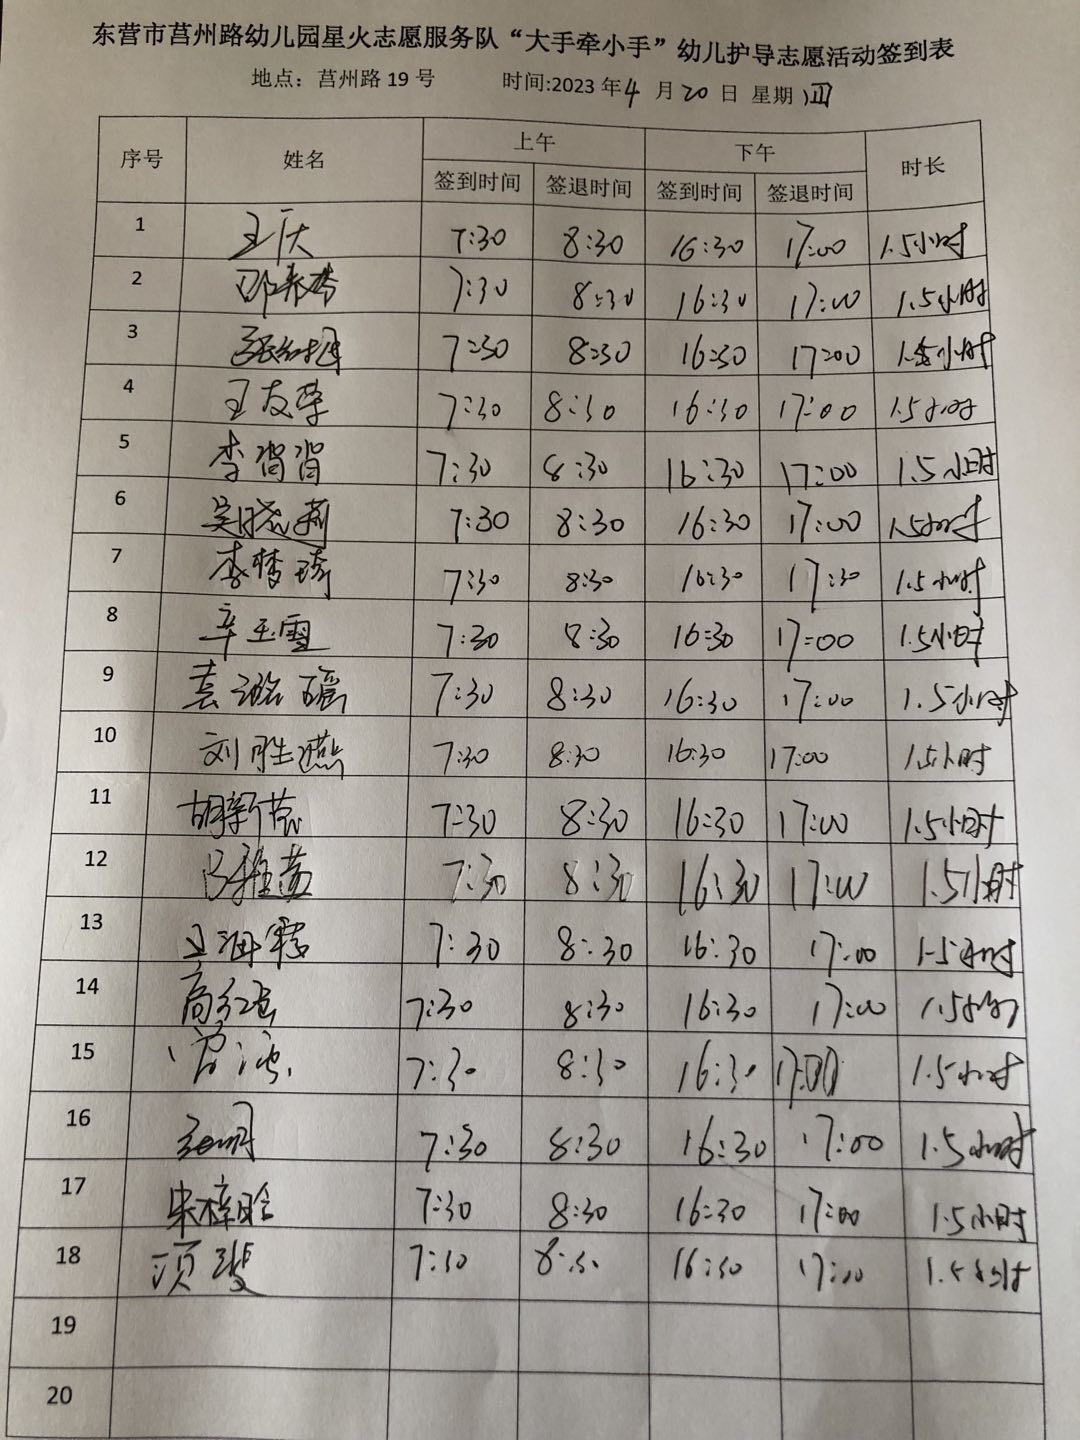 东营市莒州路幼儿园星火志愿服务队“大手牵小手”幼儿护导志愿活动签到表
地点：莒州路 19 号 时间:2023 年 4 月 20 日 星期 四
序号 姓名 上午 下午 时长
签到时间 签退时间 签到时间 签退时间
1 王庆 7:30 8:30 16:30 17:00 1.5小时
2 7:30 8:30 16:30 17:00 1.5小时
3 7:30 8:30 16:30 17:00 1.5小时
4 王友华 7:30 8:30 16:30 17:00 1.5小时
5 李肖肖 7:30 8:30 16:30 17:00 1.5小时
6 吴晓莉 7:30 8:30 16:30 17:00 1.5小时
7 李梦琦 7:30 8:30 16:30 17:30 1.5小时
8 辛玉雪 7:30 8:30 16:30 17:00 1.5小时
9 7:30 8:30 16:30 17:00 1.5小时
10 刘胜燕 7:30 8:30 16:30 17:00 1.5小时
11 7:30 8:30 16:30 17:00 1.5小时
12 7:30 8:30 16:30 17:00 1.5小时
13 7:30 8:30 16:30 17:00 1.5小时
14 7:30 8:30 16:30 17:00 1.5小时
15 7:30 8:30 16:30 17:00 1.5小时
16 7:30 8:30 16:30 17:00 1.5小时
17 宋梓晗 7:30 8:30 16:30 17:00 1.5小时
18 项斐 7:30 8:30 16:30 17:00 1.5小时
19
20